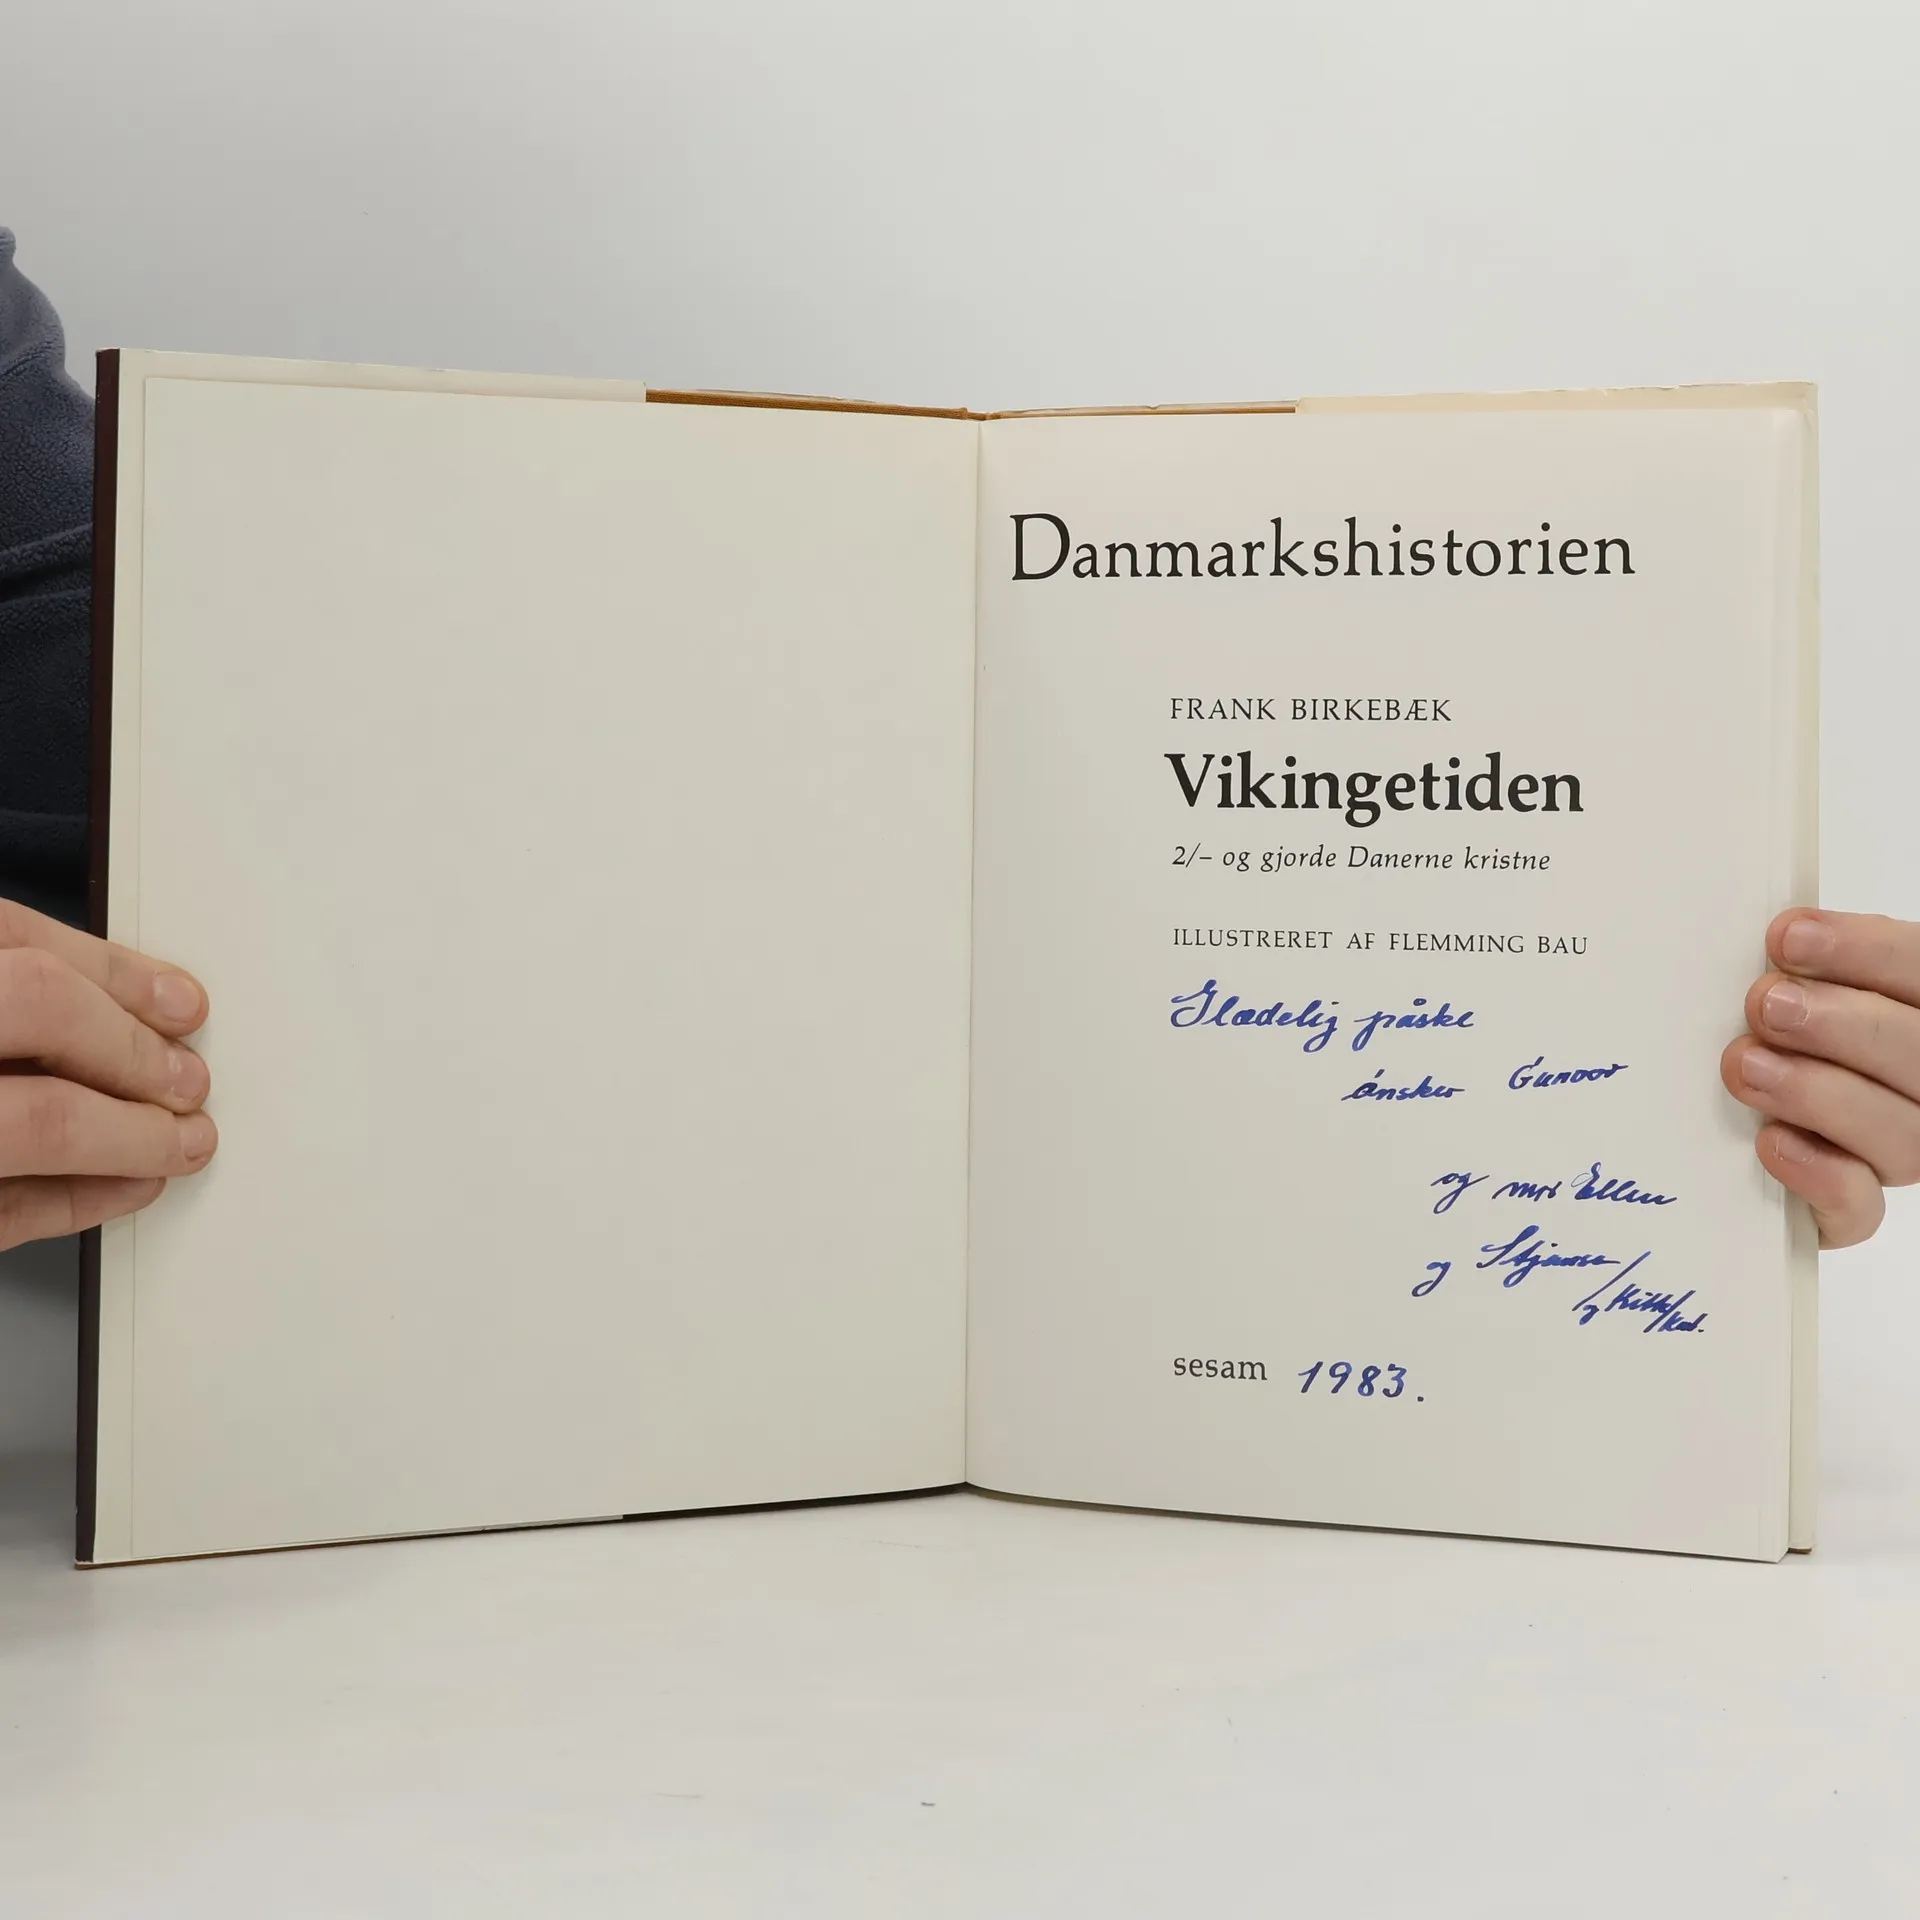 Danmarkshistorien
FRANK BIRKEBÆK
Vikingetiden
2/– og gjorde Danerne kristne
ILLUSTRERET AF FLEMMING BAU
Glædelig påske
ønsker
og mor Ellen
og
og
sesam 1983.